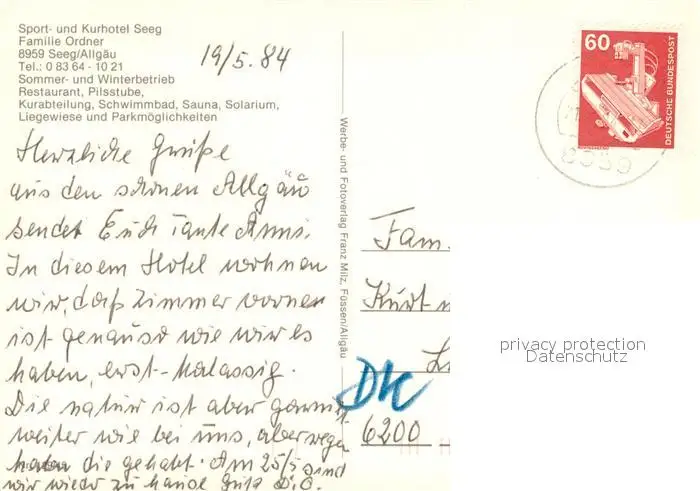 Sport- und Kurhotel Seeg
Familie Ordner
8959 Seeg/Allgäu
Tel.: 0 83 64 - 10 21
Sommer- und Winterbetrieb
Restaurant, Pilsstube,
Kurabteilung, Schwimmbad, Sauna, Solarium,
Liegewiese und Parkmöglichkeiten
19/5. 84
Herzliche Grüße
aus den schönen Allgäu
sendet Euch Tante Anni.
In diesem Hotel wohnen
wir, daß Zimmer vornen
ist genauso wie wir es
haben, erst-klassig.
Die natur ist aber
weiter wie bei uns, aber regen
haben die gehabt. Am 25/5 sind
wir wieder zu hause
Werbe- und Fotoverlag Franz Milz, Füssen/Allgäu
60
DEUTSCHE BUNDESPOST
8959
Fam.
Kurt
6200
DK
privacy protection
Datenschutz